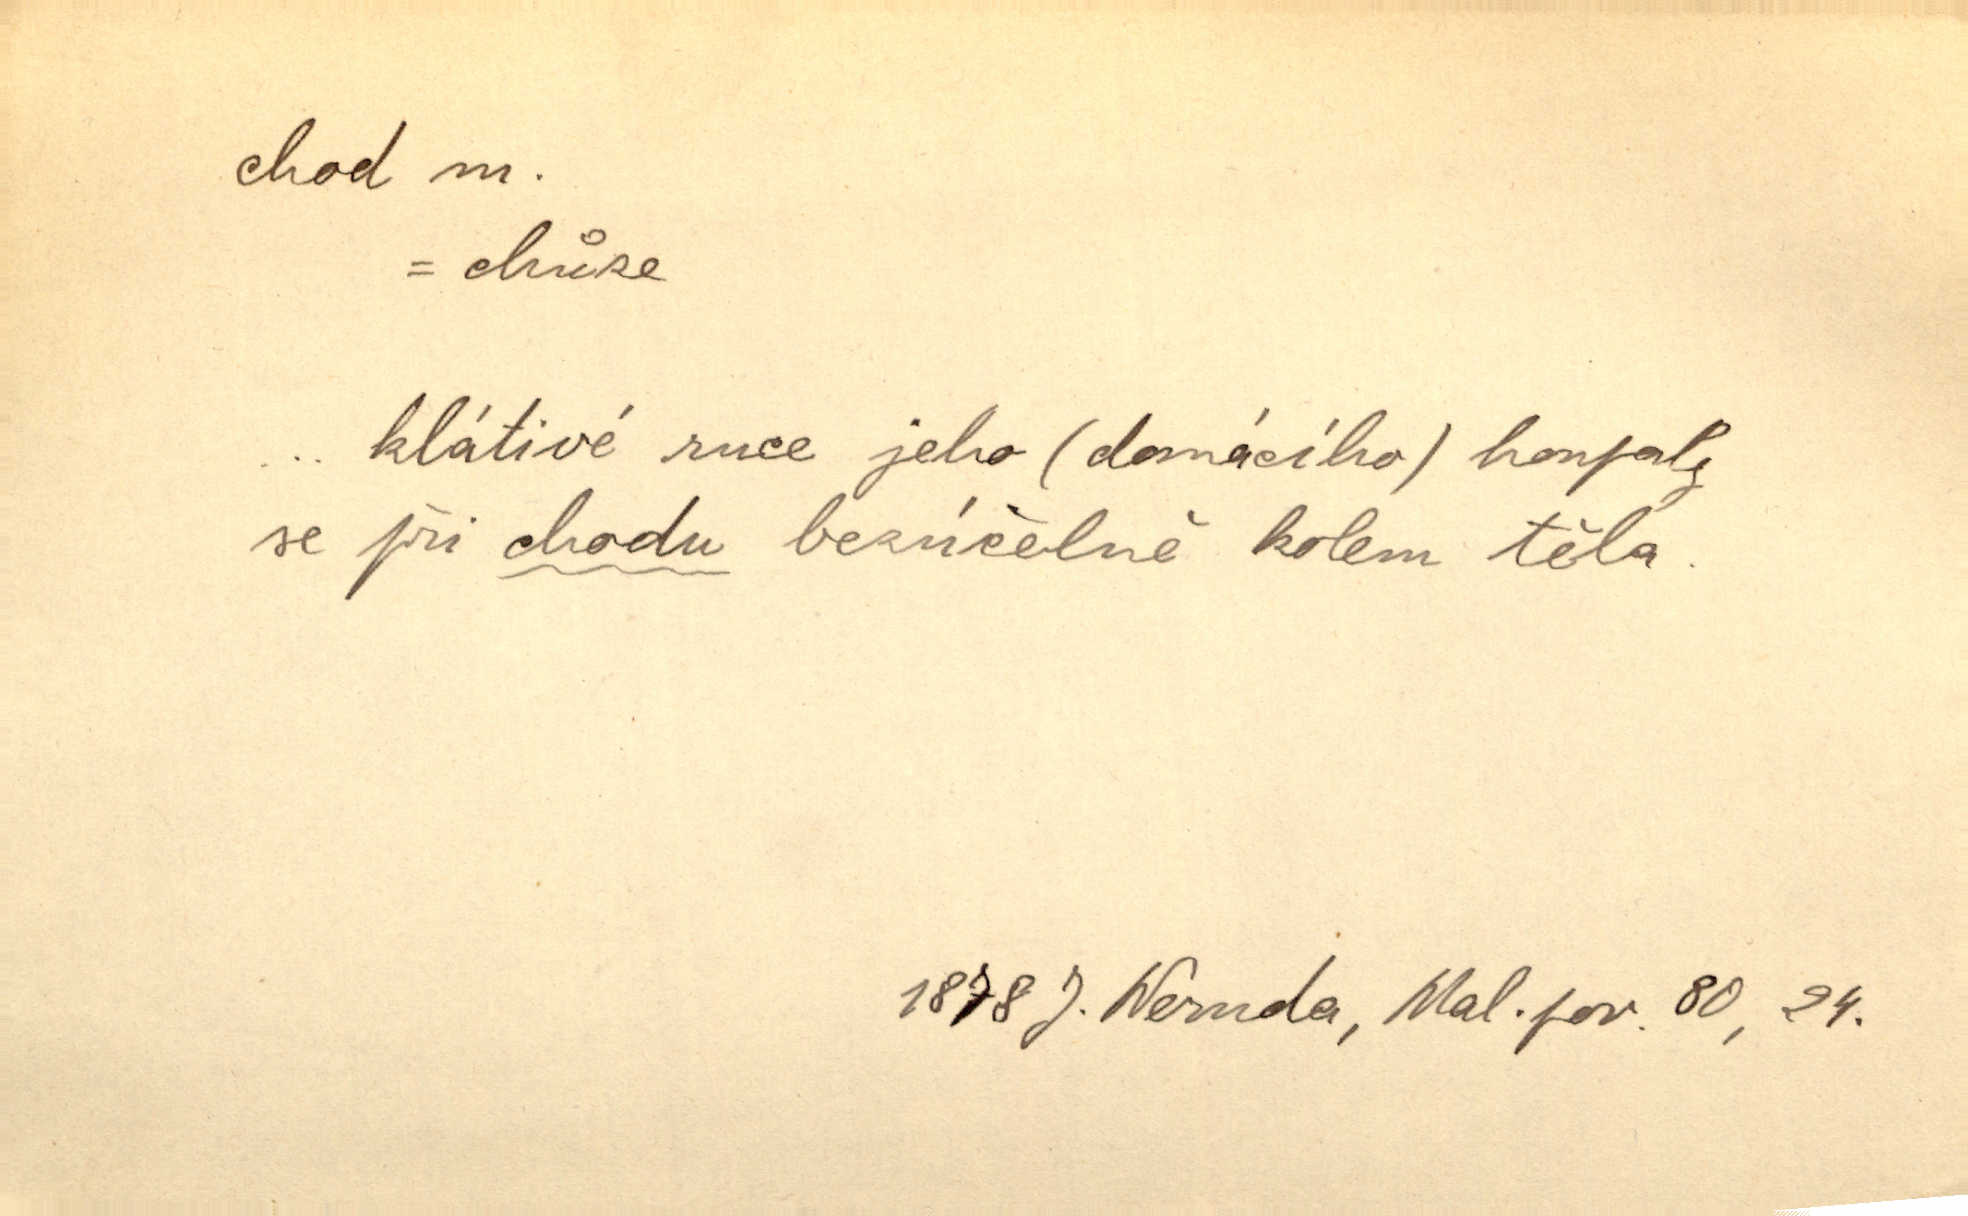 chod m.
= chůze
... klátivé ruce jeho (domácího) houpaly
se při chodu bezúčelně kolem těla.
1878 J. Neruda, Mal. pov. 80, 24.